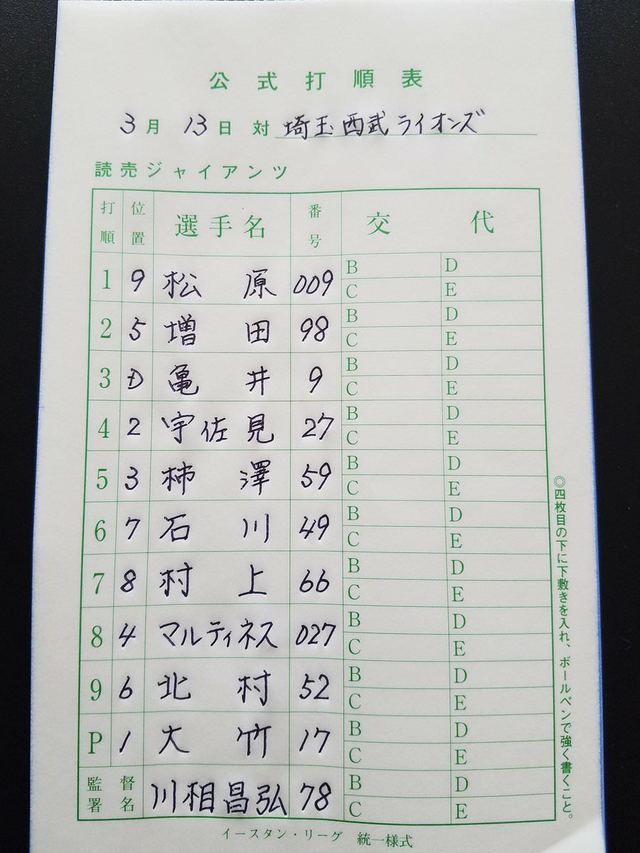 公式打順表
3月 13日 対 埼玉西武ライオンズ
読売ジャイアンツ
打順 位置 選手名 番号 交代
1 9 松原 009 B C D E
2 5 増田 98 B C D E
3 D 亀井 9 B C D E
4 2 宇佐見 27 B C D E
5 3 柿澤 59 B C D E
6 7 石川 49 B C D E
7 8 村上 66 B C D E
8 4 マルティネス 027 B C D E
9 6 北村 52 B C D E
P 1 大竹 17 B C D E
監督署名 川相昌弘 78 B C D E
◎四枚目の下に下敷きを入れ、ボールペンで強く書くこと。
イースタン・リーグ 統一様式